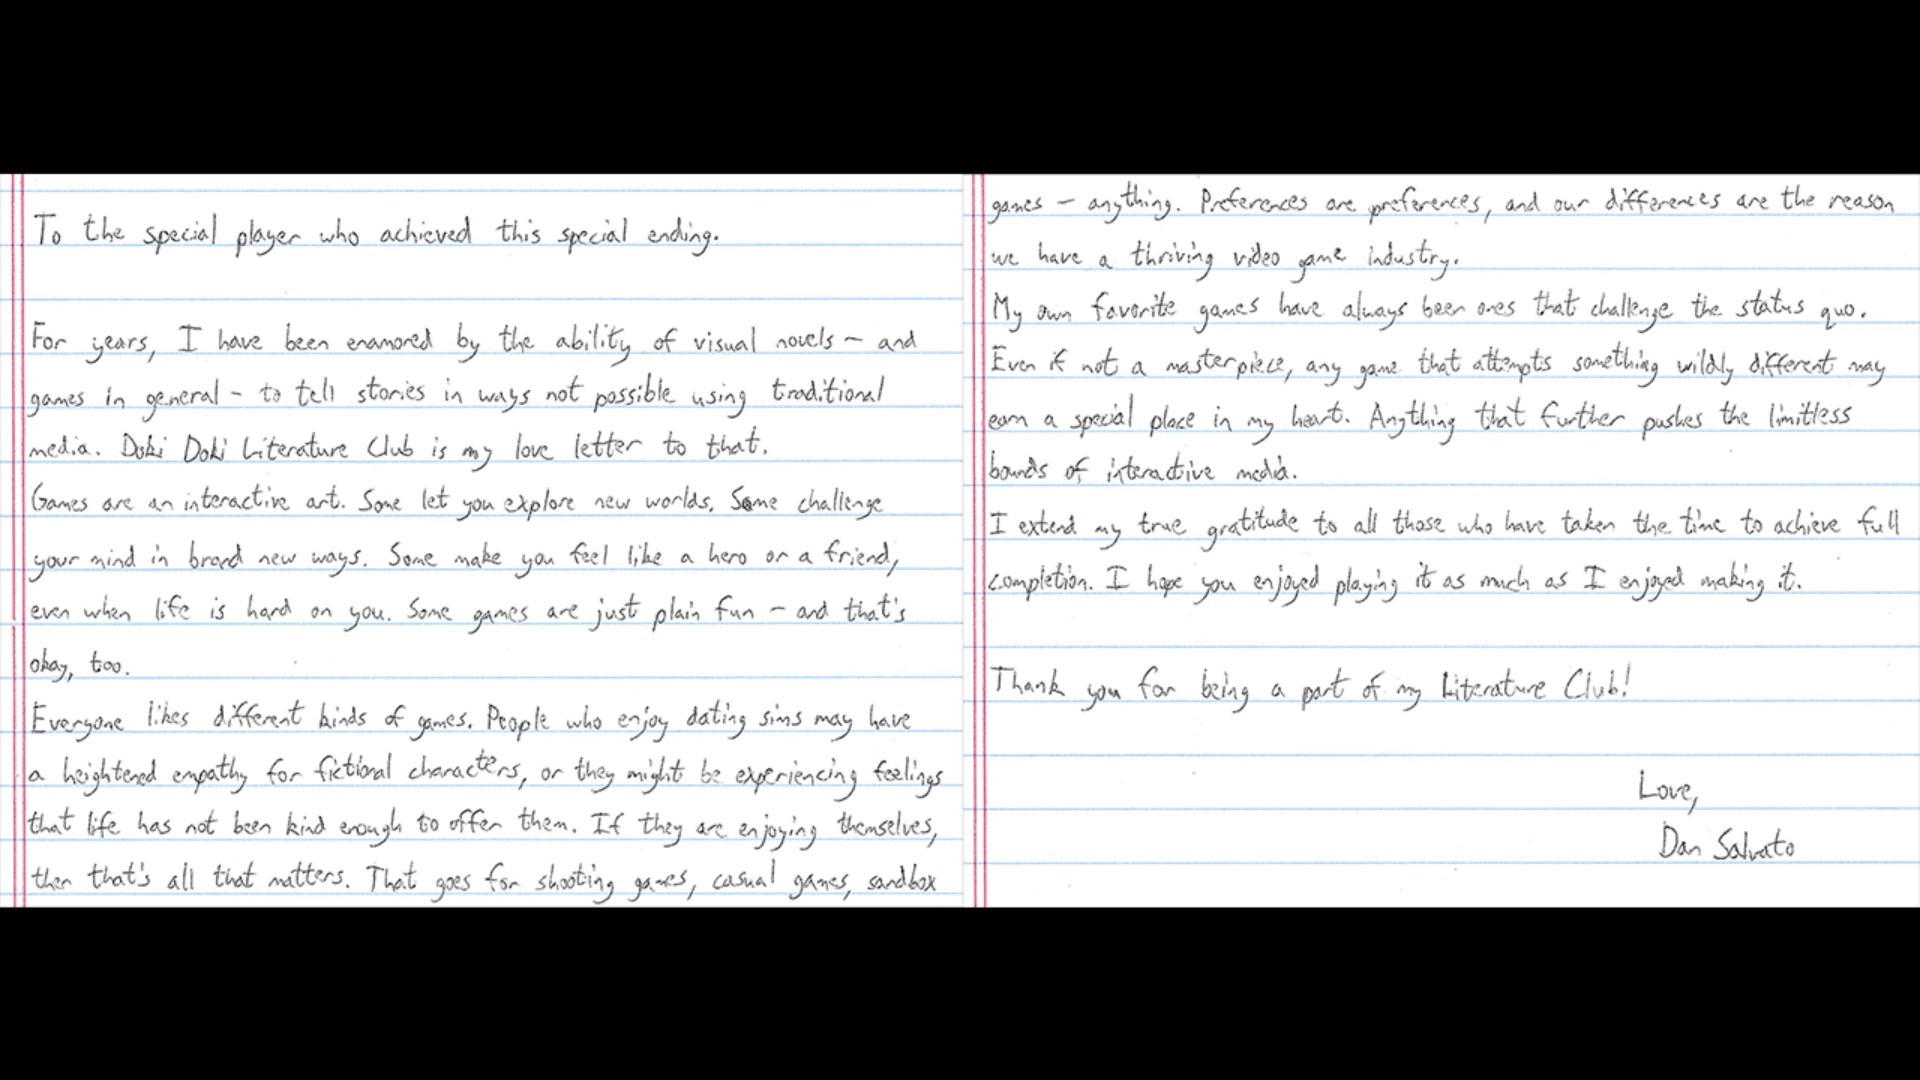 To the special player who achieved this special ending.
For years, I have been enamored by the ability of visual novels - and
games in general - to tell stories in ways not possible using traditional
media. Doki Doki Literature Club is my love letter to that.
Games are an interactive art. Some let you explore new worlds. Some challenge
your mind in brand new ways. Some make you feel like a hero or a friend,
even when life is hard on you. Some games are just plain fun - and that's
okay, too.
Everyone likes different kinds of games. People who enjoy dating sims may have
a heightened empathy for fictional characters, or they might be experiencing feelings
that life has not been kind enough to offer them. If they are enjoying themselves,
then that's all that matters. That goes for shooting games, casual games, sandbox
games - anything. Preferences are preferences, and our differences are the reason
we have a thriving video game industry.
My own favorite games have always been ones that challenge the status quo.
Even if not a masterpiece, any game that attempts something wildly different may
earn a special place in my heart. Anything that further pushes the limitless
bounds of interactive media.
I extend my true gratitude to all those who have taken the time to achieve full
completion. I hope you enjoyed playing it as much as I enjoyed making it.
Thank you for being a part of my Literature Club!
Love,
Dan Salvato